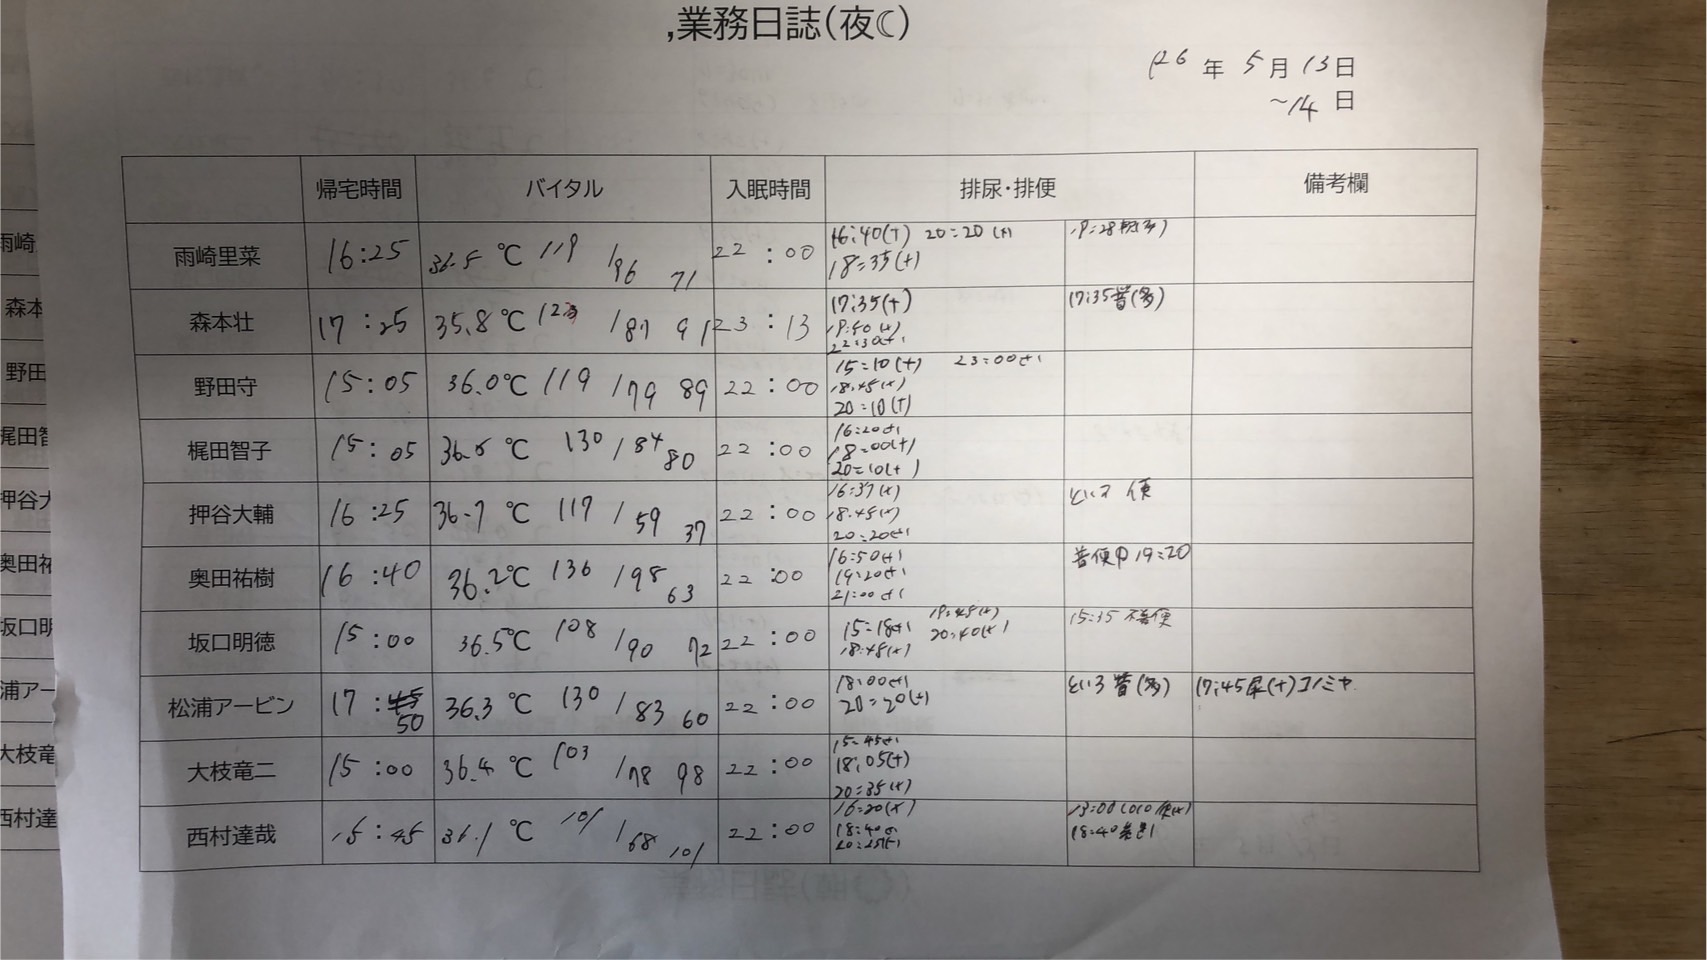 ,業務日誌(夜☾)
'26 年 5月13日
~14日
帰宅時間 バイタル 入眠時間 排尿・排便 備考欄
雨崎里菜 16:25 36.5 ℃ 119 /96 71 22:00 16:40(+) 20:20(+)
18:35(+)
森本壮 17:25 35.8℃ /87 91 23:13 17:35(+) 17:35普(多)
19:50(+)
22:30(+)
野田守 15:05 36.0℃ 119 /79 89 22:00 15:10(+) 23:00(+)
18:45(+)
20:10(+)
梶田智子 15:05 36.6 ℃ 130 /84 80 22:00 16:20(+)
18:00(+)
20:10(+)
押谷大輔 16:25 36.7 ℃ 117 /59 37 22:00 16:37(+) 便
18:45(+)
20:20(+)
奥田祐樹 16:40 36.2℃ 136 /98 63 22:00 16:50(+) 普便中19:20
19:20(+)
21:00(+)
坂口明徳 15:00 36.5℃ 108 /90 72 22:00 15:18(+) 19:45(+) 15:35
18:45(+) 20:40(+)
松浦アービン 17:50 36.3 ℃ 130 /83 60 22:00 18:00(+) 普(多) 17:45尿(+)コノミヤ
20:20(+)
大枝竜二 15:00 36.4 ℃ 103 /78 98 22:00 15:45(+)
18:05(+)
20:35(+)
西村達哉 15:45 36.1 ℃ 101 /68 101 22:00 16:20(+)
18:40 18:40
20:25(+)
雨崎
森本
野田
梶田智
押谷大
奥田祐
坂口明
浦アー
大枝竜
西村達